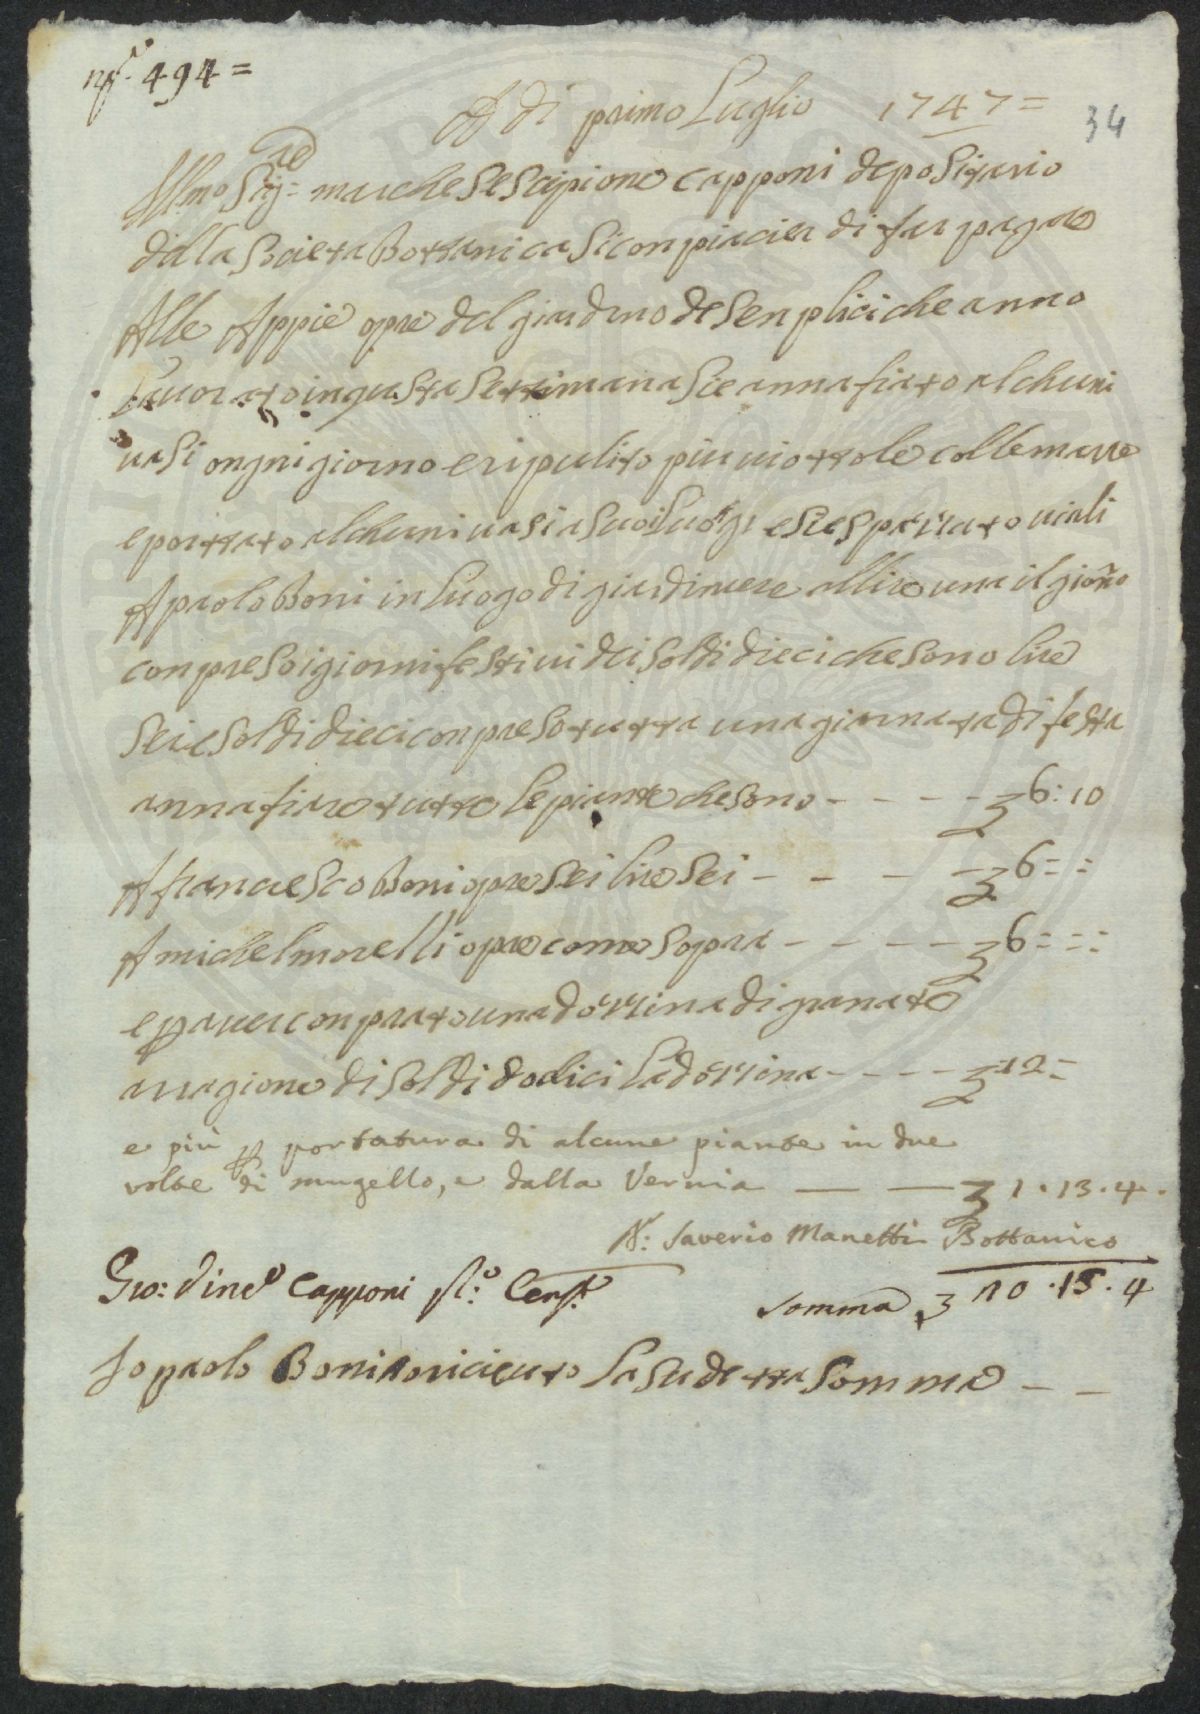 N.º 494=
A dì primo Luglio 1747=
34
Ill:mo Sig:re= marchese Scipione Capponi depositario
della Socie ta Bottanica Si conpiacier di far pagare
Alle Appie opre del giardino de Senplici che anno
Lauorato in questa settimana Sie annafiato alchuni
uasi ongni giorno e ripulito piu uiottole colle marre
e portato alchuni uasi a Suoi Luogi e Sie spazzato uiali
A paolo Boni in Luogo di giardiniere allire una il giorno
conpreso i giorni festiui dei soldi dieci che sono lire
Sei e Soldi dieci conpreso tutta una giornata di festa
annafiare tutte le piante che sono - - - - - 6:10
A franciesco Boni opre Sei lire Sei - - - - 6= =
A michel morelli opre come sopra - - - - - 6= = =
e p auer conprato una dozzina di granate
a ragione di soldi dodici la dozzina - - - - 12=
e più p portatura di alcune piante in due
volte di mugello, e dalla Vernia — — 1.13.4.
Saverio Manetti Bottanico
Gio: Vinc:o Capponi
Somma 20.15.4
Io paolo Boni o riceuto la sudetta Somma - -